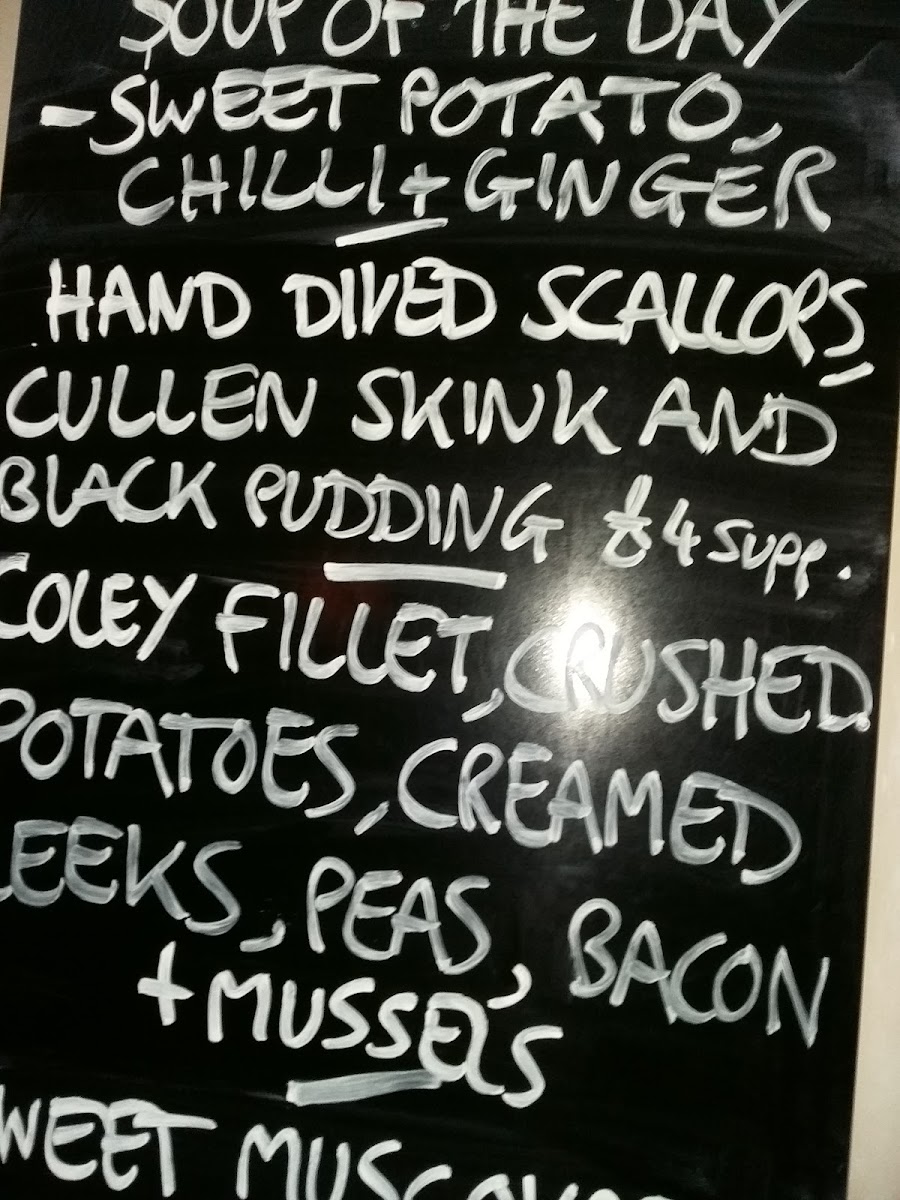 SOUP OF THE DAY
- SWEET POTATO,
CHILLI + GINGER
HAND DIVED SCALLOPS,
CULLEN SKINK AND
BLACK PUDDING £4 supp.
COLEY FILLET, CRUSHED
POTATOES, CREAMED
LEEKS, PEAS, BACON
+ MUSSELS
SWEET